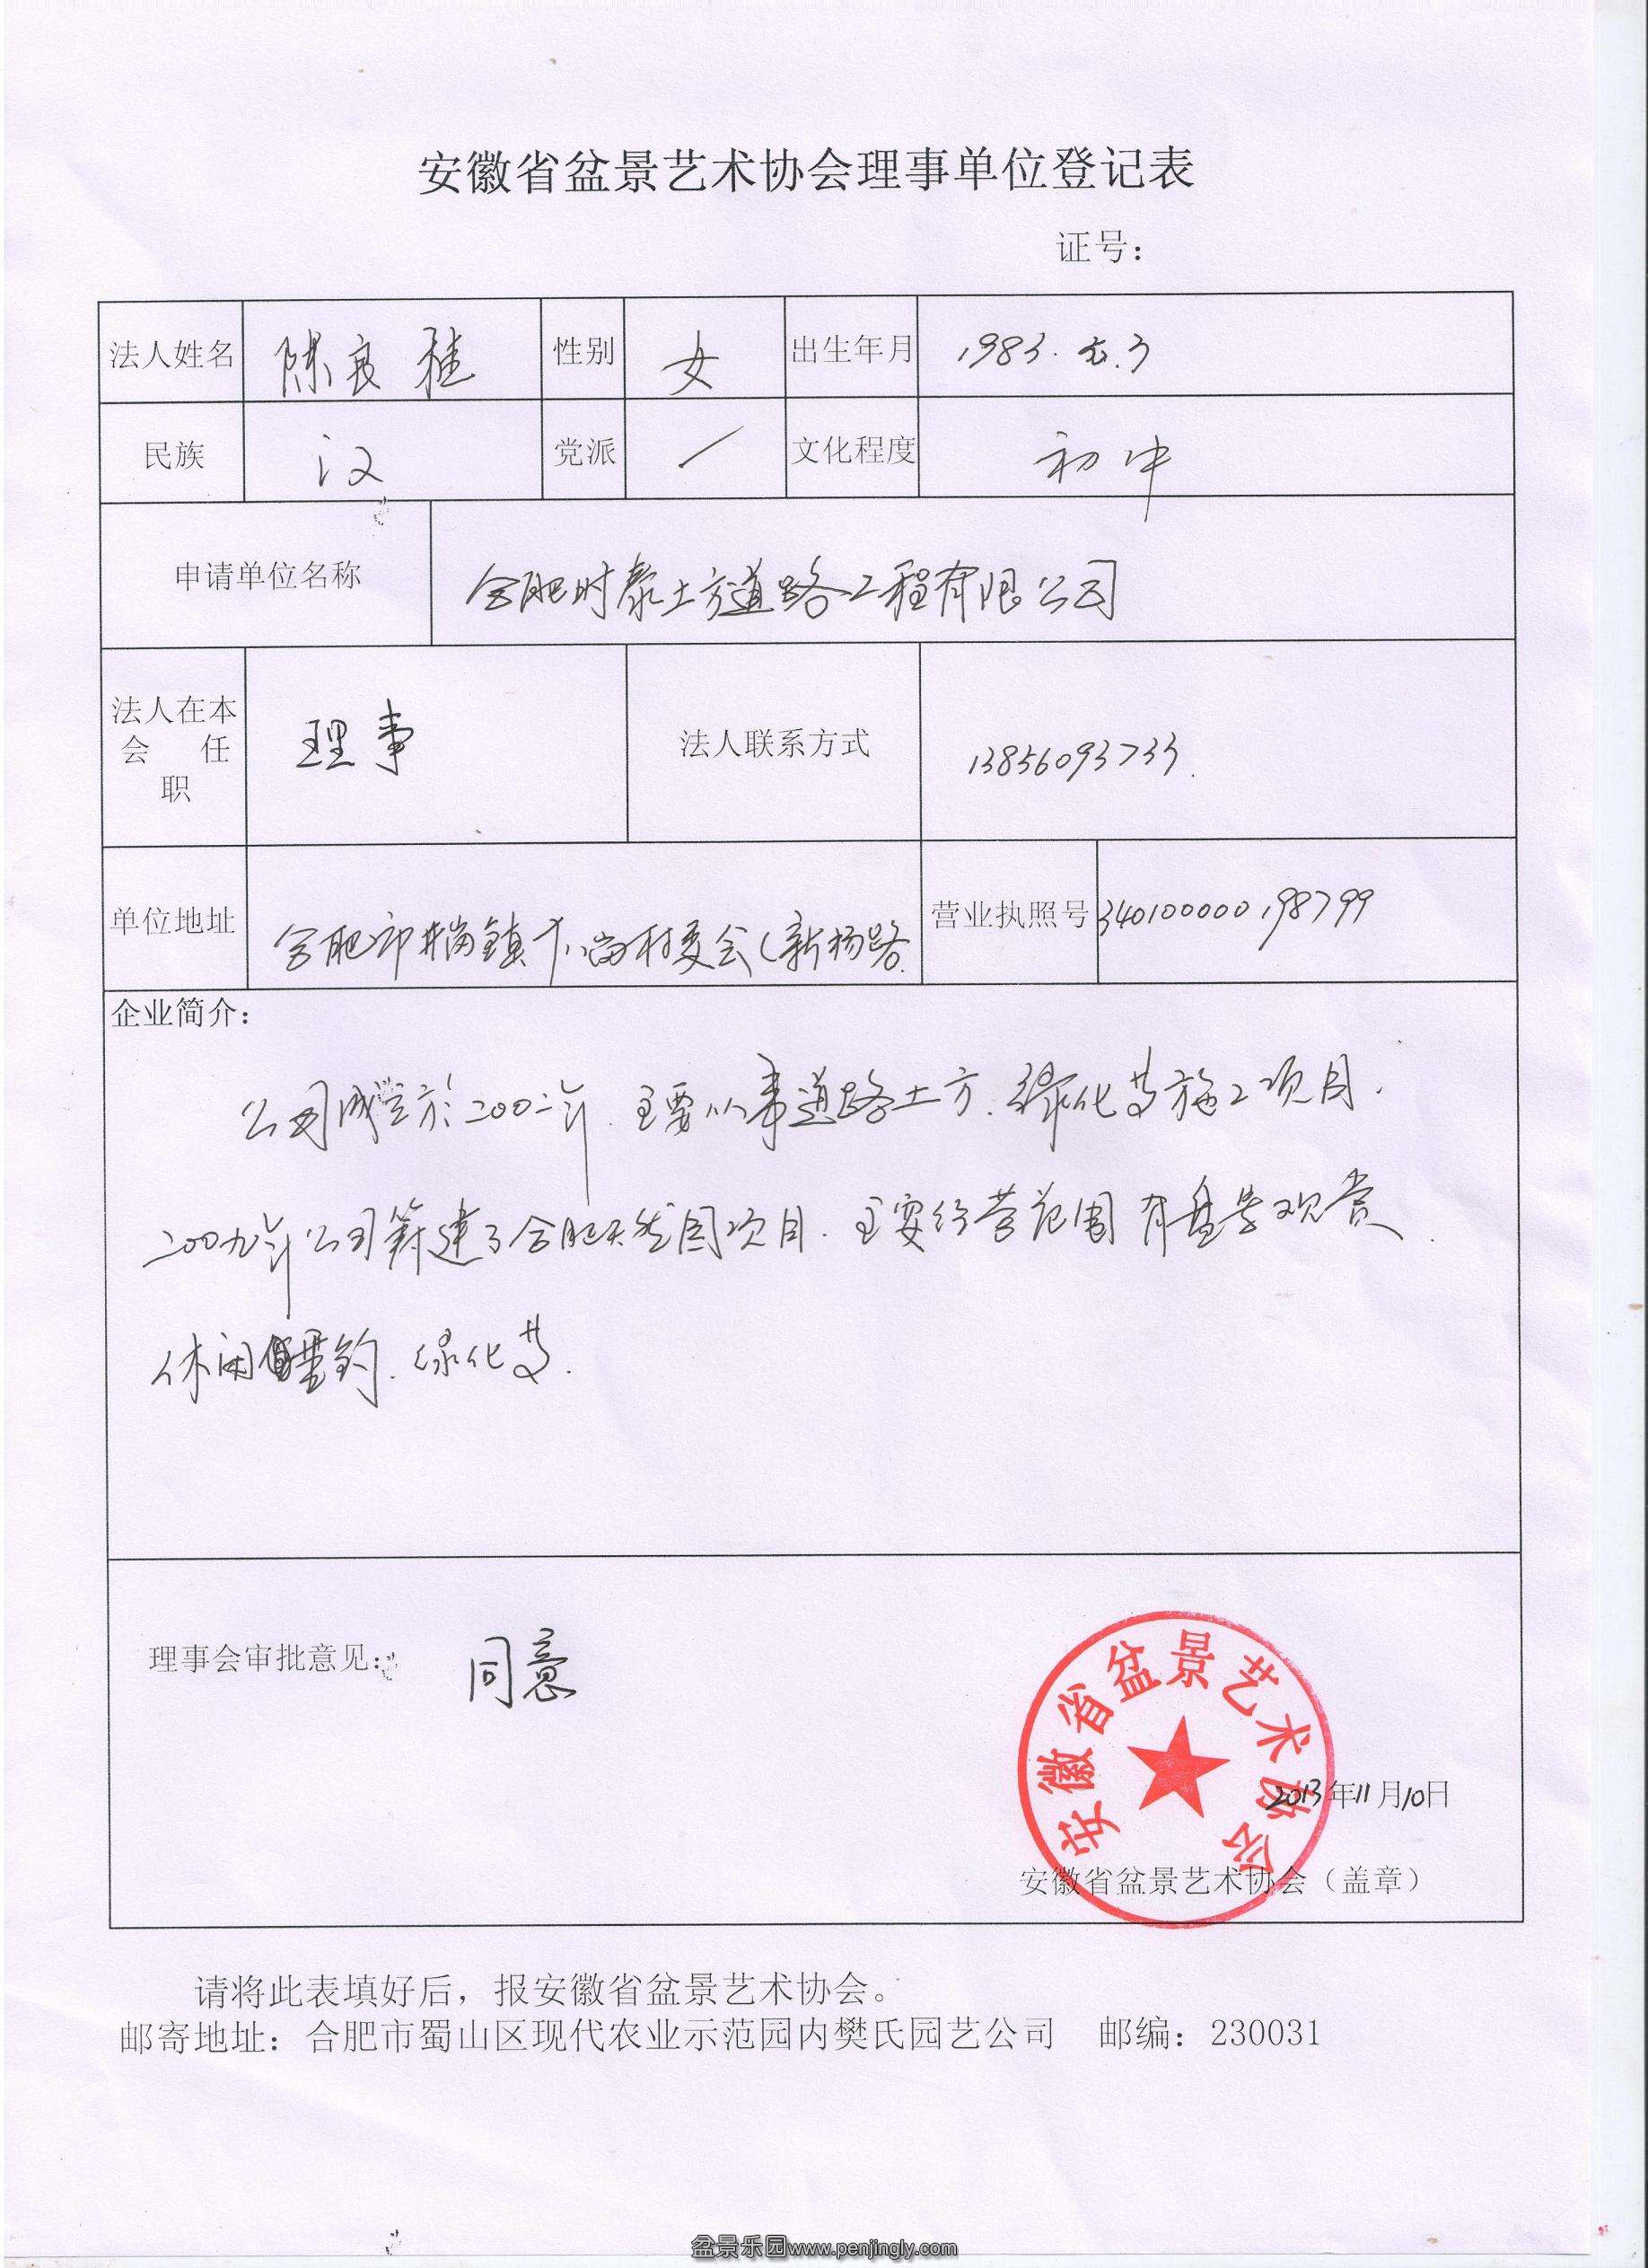 安徽省盆景艺术协会理事单位登记表
证号：
法人姓名 陈良桂 性别 女 出生年月 1983.
民族 汉 党派 / 文化程度 初中
申请单位名称 合肥时泰土方道路工程有限公司
法人在本
会 任
职
理事
法人联系方式 13856093733.
单位地址 合肥市井岗镇 岗村委会（新杨路
营业执照号 340100000198799
企业简介：
公司成立於200二年.主要从事道路土方.绿化等施工项目.
200九年公司筹建了合肥天然图项目.主要经营范围有盘景观赏.
休闲垂钓.绿化等.
理事会审批意见： 同意
安徽省盆景艺术协会
2013年11月10日
安徽省盆景艺术协会（盖章）
请将此表填好后，报安徽省盆景艺术协会。
邮寄地址：合肥市蜀山区现代农业示范园内樊氏园艺公司 邮编：230031
盆景乐园www.penjingly.com